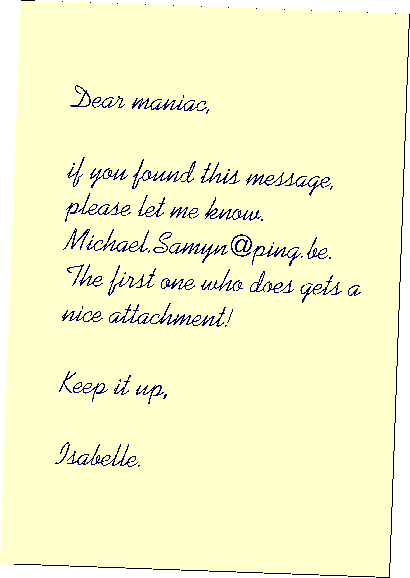 Dear maniac,
if you found this message,
please let me know.
Michael.Samyn@ping.be.
The first one who does gets a
nice attachment!
Keep it up,
Isabelle.